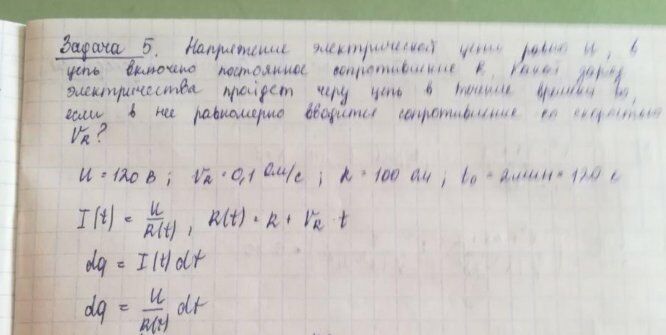 Задача 5. Напряжение электрической цепи равно U, в
цепь включено постоянное сопротивление R. Какой заряд
электричества пройдет через цепь в течение времени t₀,
если в нее равномерно вводится сопротивление со скоростью
V_R?
U = 120 В ; V_R = 0,1 Ом/с ; R = 100 Ом ; t₀ = 2мин = 120 с
I(t) = U/R(t) , R(t) = R + V_R · t
dq = I(t) dt
dq = U/R(t) dt